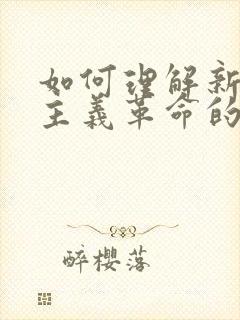 如何理解新
主義革命的
醉櫻落